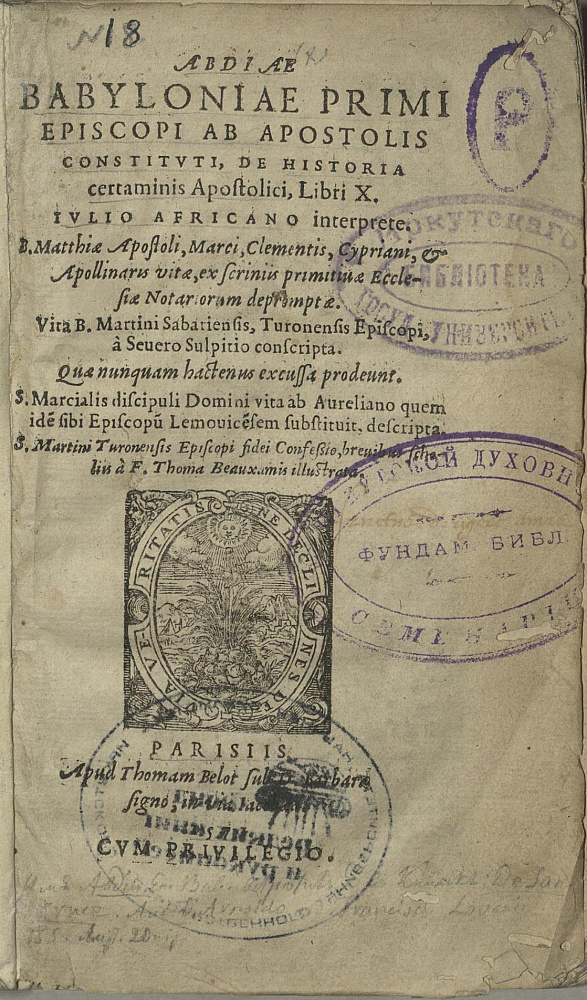 18
ABDIAE
BABYLONIAE PRIMI
EPISCOPI AB APOSTOLIS
CONSTITVTI, DE HISTORIA
certaminis Apoſtolici, Libri X.
IVLIO AFRICANO interprete.
B. Matthiæ Apoſtoli, Marci, Clementis, Cypriani, &
Apollinaris vitæ, ex ſcriniis primitiuæ Eccle-
ſiæ Notariorum depromptæ.
Vita B. Martini Sabarienſis, Turonenſis Epiſcopi,
à Seuero Sulpitio conſcripta.
Quæ nunquam hactenus excuſſa prodeunt.
S. Marcialis diſcipuli Domini vita ab Aureliano quem
idē ſibi Epiſcopū Lemouicēſem ſubſtituit, deſcripta.
S. Martini Turonenſis Epiſcopi fidei Confeßio, breuibus ſcho-
liis à F. Thoma Beauxamis illuſtrata
БИБЛІОТЕКА
УНИВЕРСИТЕ
КУТСКОЙ ДУХОВН
ФУНДАМ. БИБЛ.
СЕМИНАРІИ
NE DECLI
NES DE
VIA VE-
RITATIS
PARISIIS
Apud Thomam Belot ſub D. Barbaræ
ſigno, in via
CVM PRIVILEGIO.